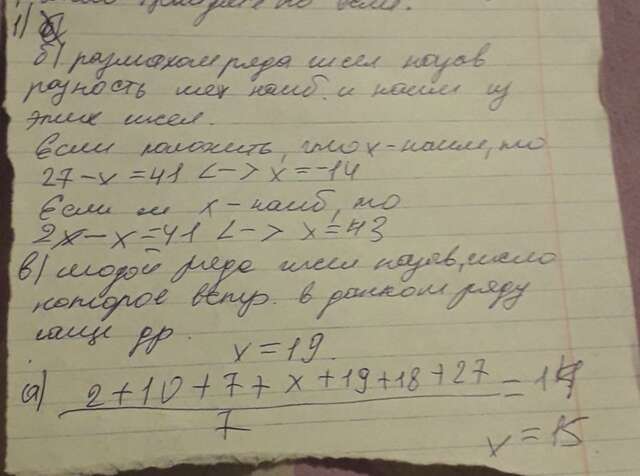 1) а)
б) размахом ряда чисел назыв
разность меж наиб. и наим из
этих чисел.
Если положить, что х-наим, то
27-х=41 <-> х=-14
Если ж х-наиб, то
2х-х=41 <-> х=43
в) модой ряда чисел назыв, число
которое встр. в данном ряду
чаще др.
х=19.
а) 2+10+7+х+19+18+27 / 7 = 14
х=15